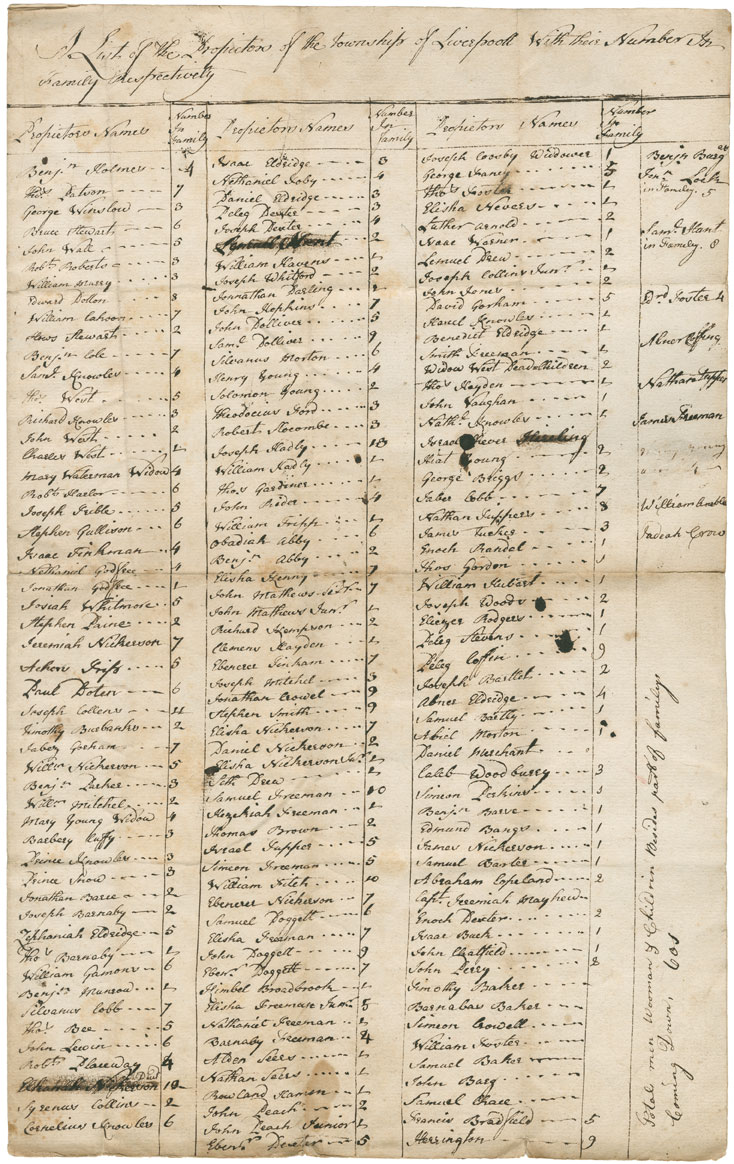 A List of the Propietors of the Township of Liverpooll With their Number In
Family Respectively
Propietors Names
Number In Family
Benjn Holmes 4
Thos 7
George Winslow 3
Bruce Stewart 6
John Wall 5
Robt Roberts 3
William Murry 3
Edward Dolton 3
William Cahoon 7
Hews Stewart 2
Benjn Cole 7
Saml Knowles 4
Thos West 5
Richard Knowles 3
John West 2
Charles West 1
Mary Waterman Widow 4
Robt Harlor 6
Joseph Trible 5
Stephen Gullison 6
Isaac Tinkman 4
Nathaniel Godfree 4
Jonathan Godfree 1
Josiah Whitmore 5
Stephen Paine 2
Jeremiah Nickerson 7
5
Paul Dolen 6
Joseph Collens 11
Timothy Burbanks 2
Jabez Gorham 7
Willm Nickerson 5
Benjn Parker 3
Willm Mitchel 2
Mary Young Widow 4
Barbery Cuffy 3
Prince Knowles 3
Prince Snow 3
Jonathan Barce 2
Joseph Barnaby 2
Zephaniah Eldridge 5
Thos Barnaby 1
William Gamons 6
Benjn Munrow 1
Silvanus Cobb 7
Thos Bee 5
John Lewin 6
Robt 4
Nickerson 10
Syrenus Collins 2
Cornelius Knowles 6
Propietors Names
Number In Family
Isaac Eldridge 3
Nathaniel Toby 4
Daniel Eldridge 3
Peleg Dexter 3
Joseph Dexter 4
2
William Havens 1
Joseph Whitford 2
Jonnathan Darling 2
John Hopkins 7
John Dolliver 5
Saml Dolliver 9
Silvanus Morton 6
Henry Young 4
Solomon Young 2
Theodocius Ford 3
Robert Slocombe 3
Joseph Hadly 13
William Hadly 1
Thos Gardiner 1
John Rider 4
William Tripp 1
Obadiah Abby 6
Benjn Abby 2
Elisha Henry 1
John Mathews Senr 7
John Mathews Junr 1
Richard Kempson 2
Clemens Hayden 1
Ebenezer Pinham 7
Joseph Mitchel 3
Jonathan Crowel 9
Stephen Smith 9
Elisha Nickerson 7
Daniel Nickerson 2
Elisha Nickerson Junr 1
Seth Drew 1
Samuel Freeman 10
Hezekiah Freeman 1
Thomas Brown 2
Israel Tupper 5
Simeon Freeman 5
William Fitch 10
Ebenezer Nickerson 7
Samuel Doggett 6
Elisha Freeman 7
John Doggett 9
Ebenr Doggett 7
Himbel Broadbrook 1
Elisha Freeman Junr 5
Nathaniel Freeman 1
Barnaby Freeman 4
Alden Sears 1
Nathan Sears 1
Rowland Hamon 1
John Peach 2
John Peach Junior 1
Ebenr Dexter 5
Propietors Names
Number In Family
Joseph Coosby Widower 1
George Franey 5
Thos Foster 5
Elisha Nevers 1
Luther Arnold 2
Isaac Warner 1
Lemuel Drew 2
Joseph Collins Junr 1
John Jones 2
David Gorham 5
Hamel Knowles 1
Benedict Eldridge 1
Smith Freeman 1
Widow West Dead 2 Children 2
Thos Hayden 1
John Vaughan 1
Nathl Knowles 1
Israel Chever
Hiat Young 2
George Briggs 2
Jabez Cobb 7
Nathan Tuppers 8
James Tucker 3
Enoch Randel 1
Thos Gordon 1
William Hubart 1
Joseph Woods 2
Eliezer Rodgers 1
Peleg Stevens 1
Peleg Coffin 9
Joseph Bartlet 2
Abner Eldridge 4
Samuel Bartly 1
Abiel Morton 1
Daniel Merchant
Caleb Woodburry 3
Simeon Perkins 1
Benjn Barce 1
Edmund Bangs 1
James Nickerson 1
Samuel Barter 1
Abraham Copeland 2
Capt Jeremiah Mayhew
Enoch Dexter 2
Isaac Buck 1
John Chatfield 1
John Perry 8
Timothy Baker
Barnabas Baker
Simeon Crowell
William Foster
Samuel Baker
John Barg
Samuel Chace
Francis Bradfield 5
Herrington 9
Benjn Barg
Jonn Lock
in Family 5
Saml Hant
in Family 8
Edrd Foster 4
Abner Coffing
Nathan Tupper
James Freeman
William
Judah Crow
Total men Wooman & Children Besides part of familys
Coming Down, 608